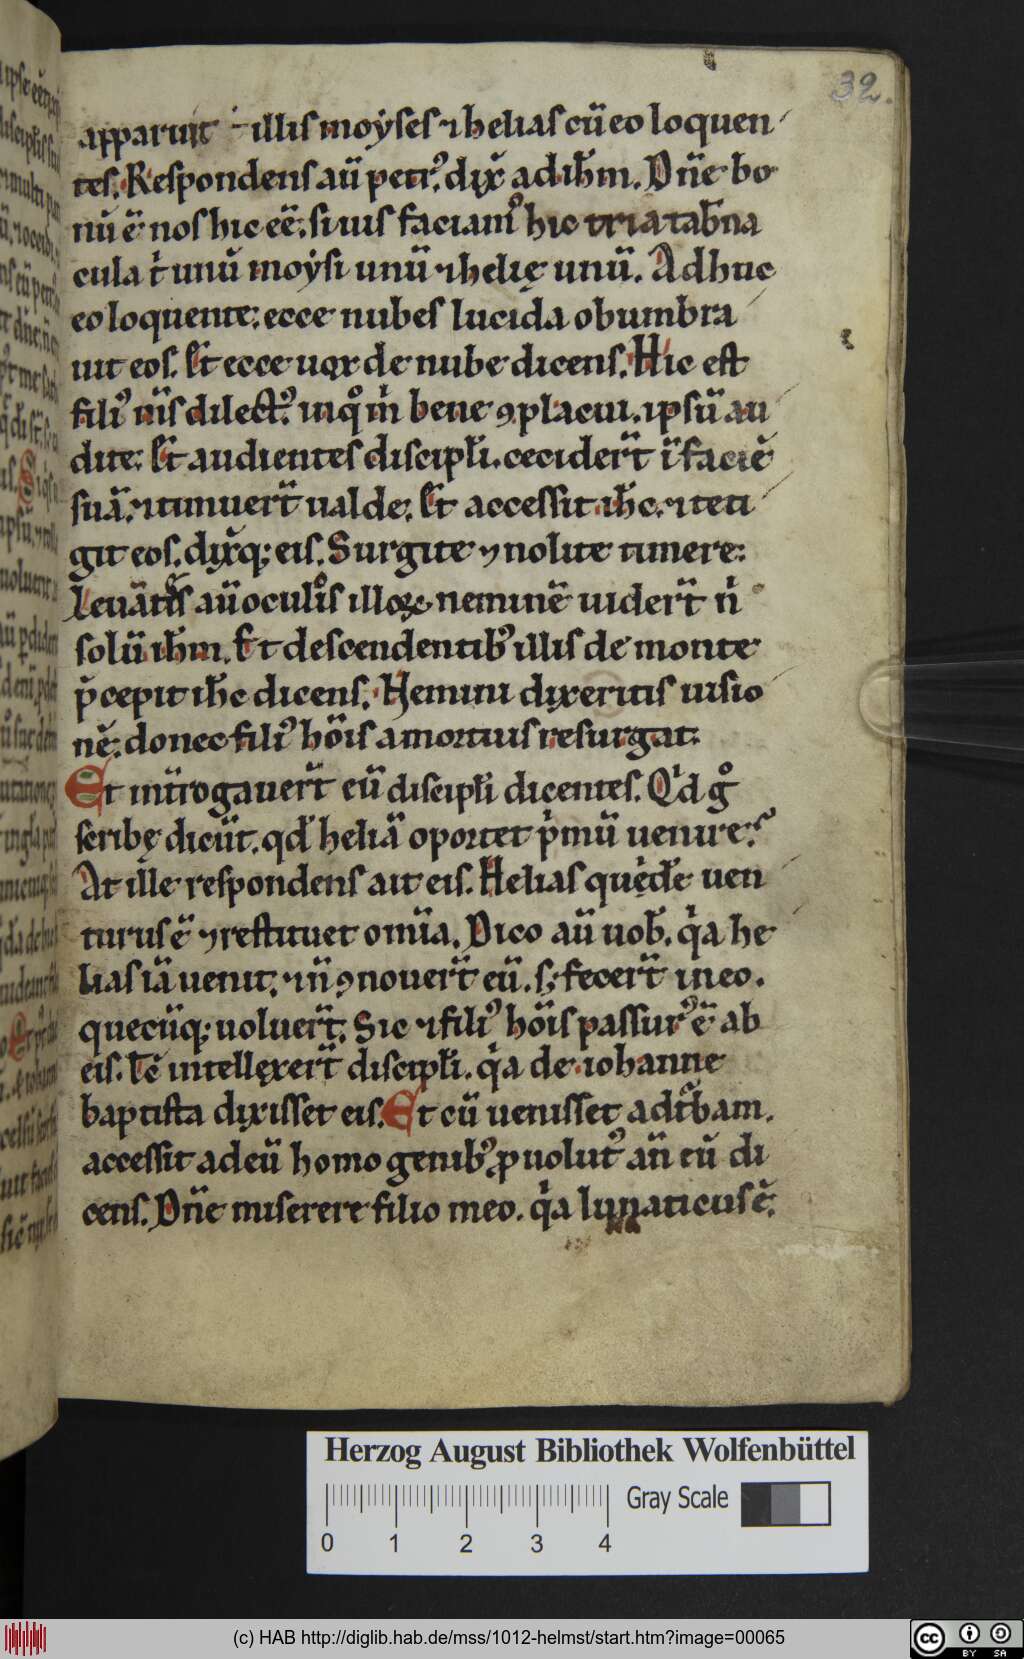 32.
apparuit illis moyses ⁊ helias cū eo loquen
tes. Respondens aū petrꝰ dix̄ ad ih̄m. Dn̄e bo
nū ē nos hic eē. si uis faciamꝰ hic tria tab̄na
cula t̍ unū moysi unū ⁊ helię unū. Adhuc
eo loquente. ecce nubes lucida obumbra
uit eos. Et ecce uox de nube dicens. Hic est
filiꝰ m̄s dilectꝰ. in qͦ m̍ bene ꝯplacui. ipsū au
dite. Et audientes discipl̄i. cecider̄t ī faciē
suā. ⁊ timuer̄t ualde. Et accessit ih̄c. ⁊ teti
git eos. dix̄q; eis. Surgite ⁊ nolite timere.
Leuātes aū oculos suos neminē uider̄t n̍
solū ih̄m. Et descendentibꝰ illis de monte
p̄cepit ih̄c dicens. Nemini dixeritis uisio
nē. donec filiꝰ hōis a mortuis resurgat.
Et int̄rogauer̄t eū discipl̄i dicentes. Qͥd gͦ
scribę dicūt. qd̄ heliā oportet pͥmū uenire.
At ille respondens ait eis. Helias quędē uen
turus ē ⁊ restituet om̄ia. Dico aū uob̄. qͥa he
lias iā uenit. ⁊ n̄ ꝯnouer̄t eū. s; fecer̄t in eo.
quecūq; uoluer̄t. Sic ⁊ filiꝰ hōis passurꝰ ē ab
eis. t̄c intellexer̄t discipl̄i. qͥa de iohanne
baptista dixisset eis. Et cū uenisset ad t̄bam.
accessit ad eū homo genibꝰ puolutꝰ an̄ eū di
cens. Dn̄e miserere filio meo. qͥa lunaticus ē.
Herzog August Bibliothek Wolfenbüttel
Gray Scale
0 1 2 3 4
(c) HAB http://diglib.hab.de/mss/1012-helmst/start.htm?image=00065
cc BY SA